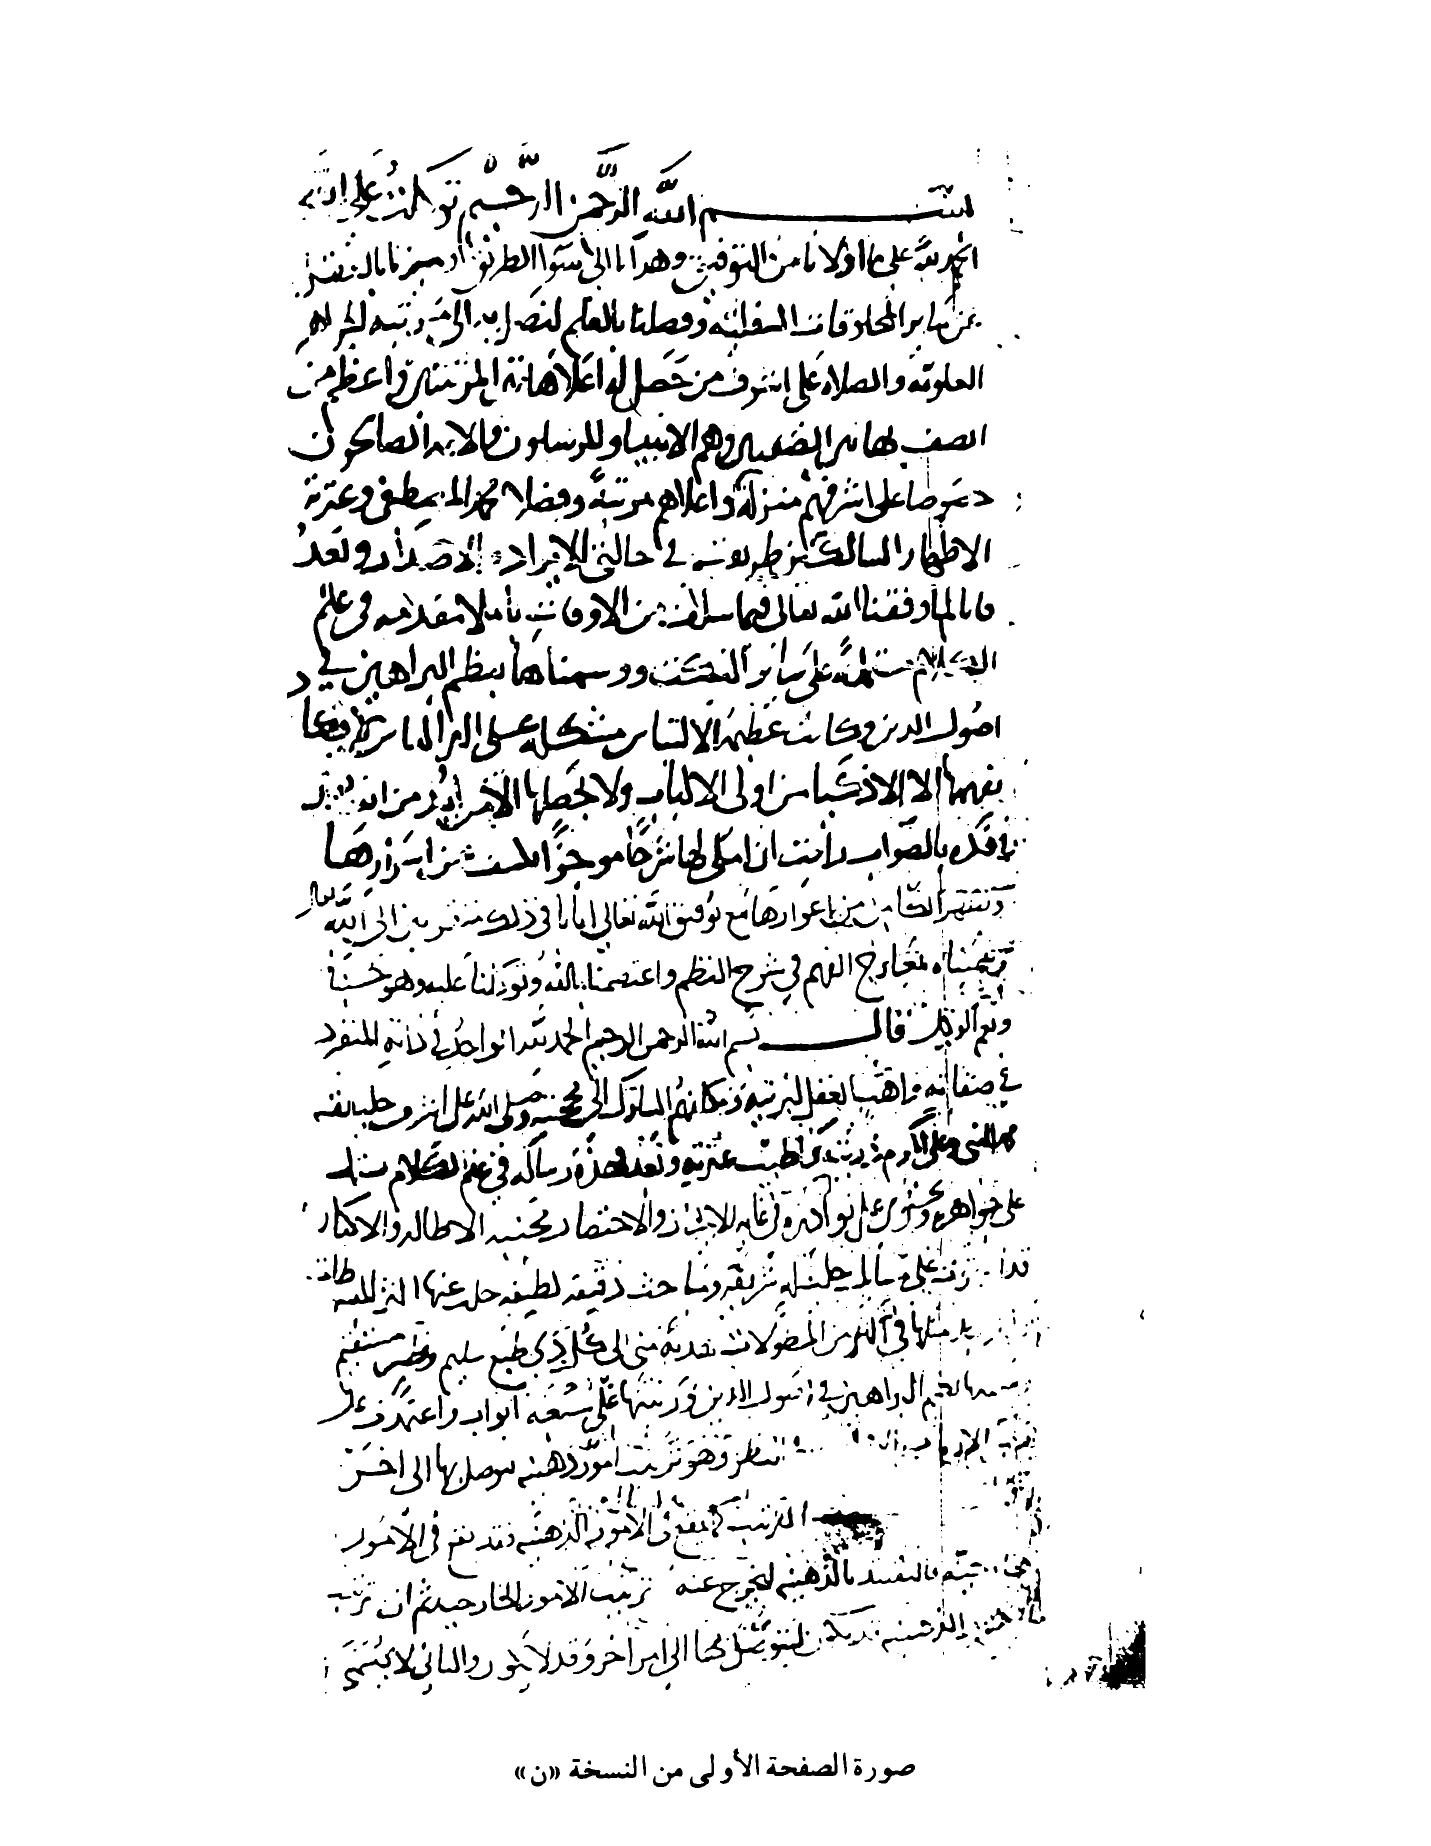 بسم الله الرحمن الرحيم توكلت على الله
الحمد لله على ما اولانا من التوفيق وهدانا الى سوا الطريق
من ساير المخلوقات السفلية وفضلنا بالعلم لنصل به الى مرتبة الجواهر
العلوية والصلاة على اشرف من حصل له اعلا هاتين المرتبتين واعظم من
اتصف بهاتين الفضيلتين وهم الانبيا والمرسلون والايمة الصالحون
خصوصا على اشرفهم منزلة واعلاهم مرتبة وفضلا محمد المصطفى وعترته
الاطهار السالكين طريقته في حالتي الايراد والاصدار وبعد
فانا لما وفقنا الله تعالى فيما سلف من الاوقات باملا مقدمة في علم
الكلام مشتملة على ساير النكت ووسمناها بنظم البراهين في
اصول الدين وكانت عظيمة الالتباس مشكلة على اكثر الناس
يفهمها الا الاذكيا من اولى الالباب ولا يحصلها الا من
في فكره بالصواب رايت ان املى لها شرحا موجزا يكشف عن اسرارها
ويظهر الكامن من اغوارها مع توفيق الله تعالى ايانا في ذلك متقربين الى الله تعالى
وسميناه بمعارج الفهم في شرح النظم واعتصمنا بالله وتوكلنا عليه وهو حسبنا
ونعم الوكيل قال بسم الله الرحمن الرحيم الحمد لله الواحد في ذاته المتفرد
في صفاته واهب العقل لبريته ومكلفهم السلوك الى محجته وصلى الله على اشرف خليقته
محمد النبي وعلى اكرم ذريته واطيب عترته وبعد فهذه رسالة في علم الكلام
على جواهره وتحتوى على نوادره في غاية الايجاز والاختصار مجتنبة الاطالة والاكثار
على مسالل جليلة شريفة ومباحث دقيقة لطيفة خلت عنها اكثر
مثلها في اكثر المطولات هدية منى الى كل ذي طبع سليم ونظر مستقيم
بنظم البراهين في اصول الدين ورتبتها على سبعة ابواب واعتمدت على
النظر وهو ترتيب امور ذهنية يتوصل بها الى اخر
الترتيب كما يقع في الامور الذهنية فقد يقع في الامور
فالتقييد بالذهنية ليخرج عنه ترتيب الامور الخارجية ثم ان ترتيب
الذهنية قد يكون ليتوصل بها الى امر اخر وقد لا يكون والثاني لا يسمى
صورة الصفحة الأولى من النسخة «ن»